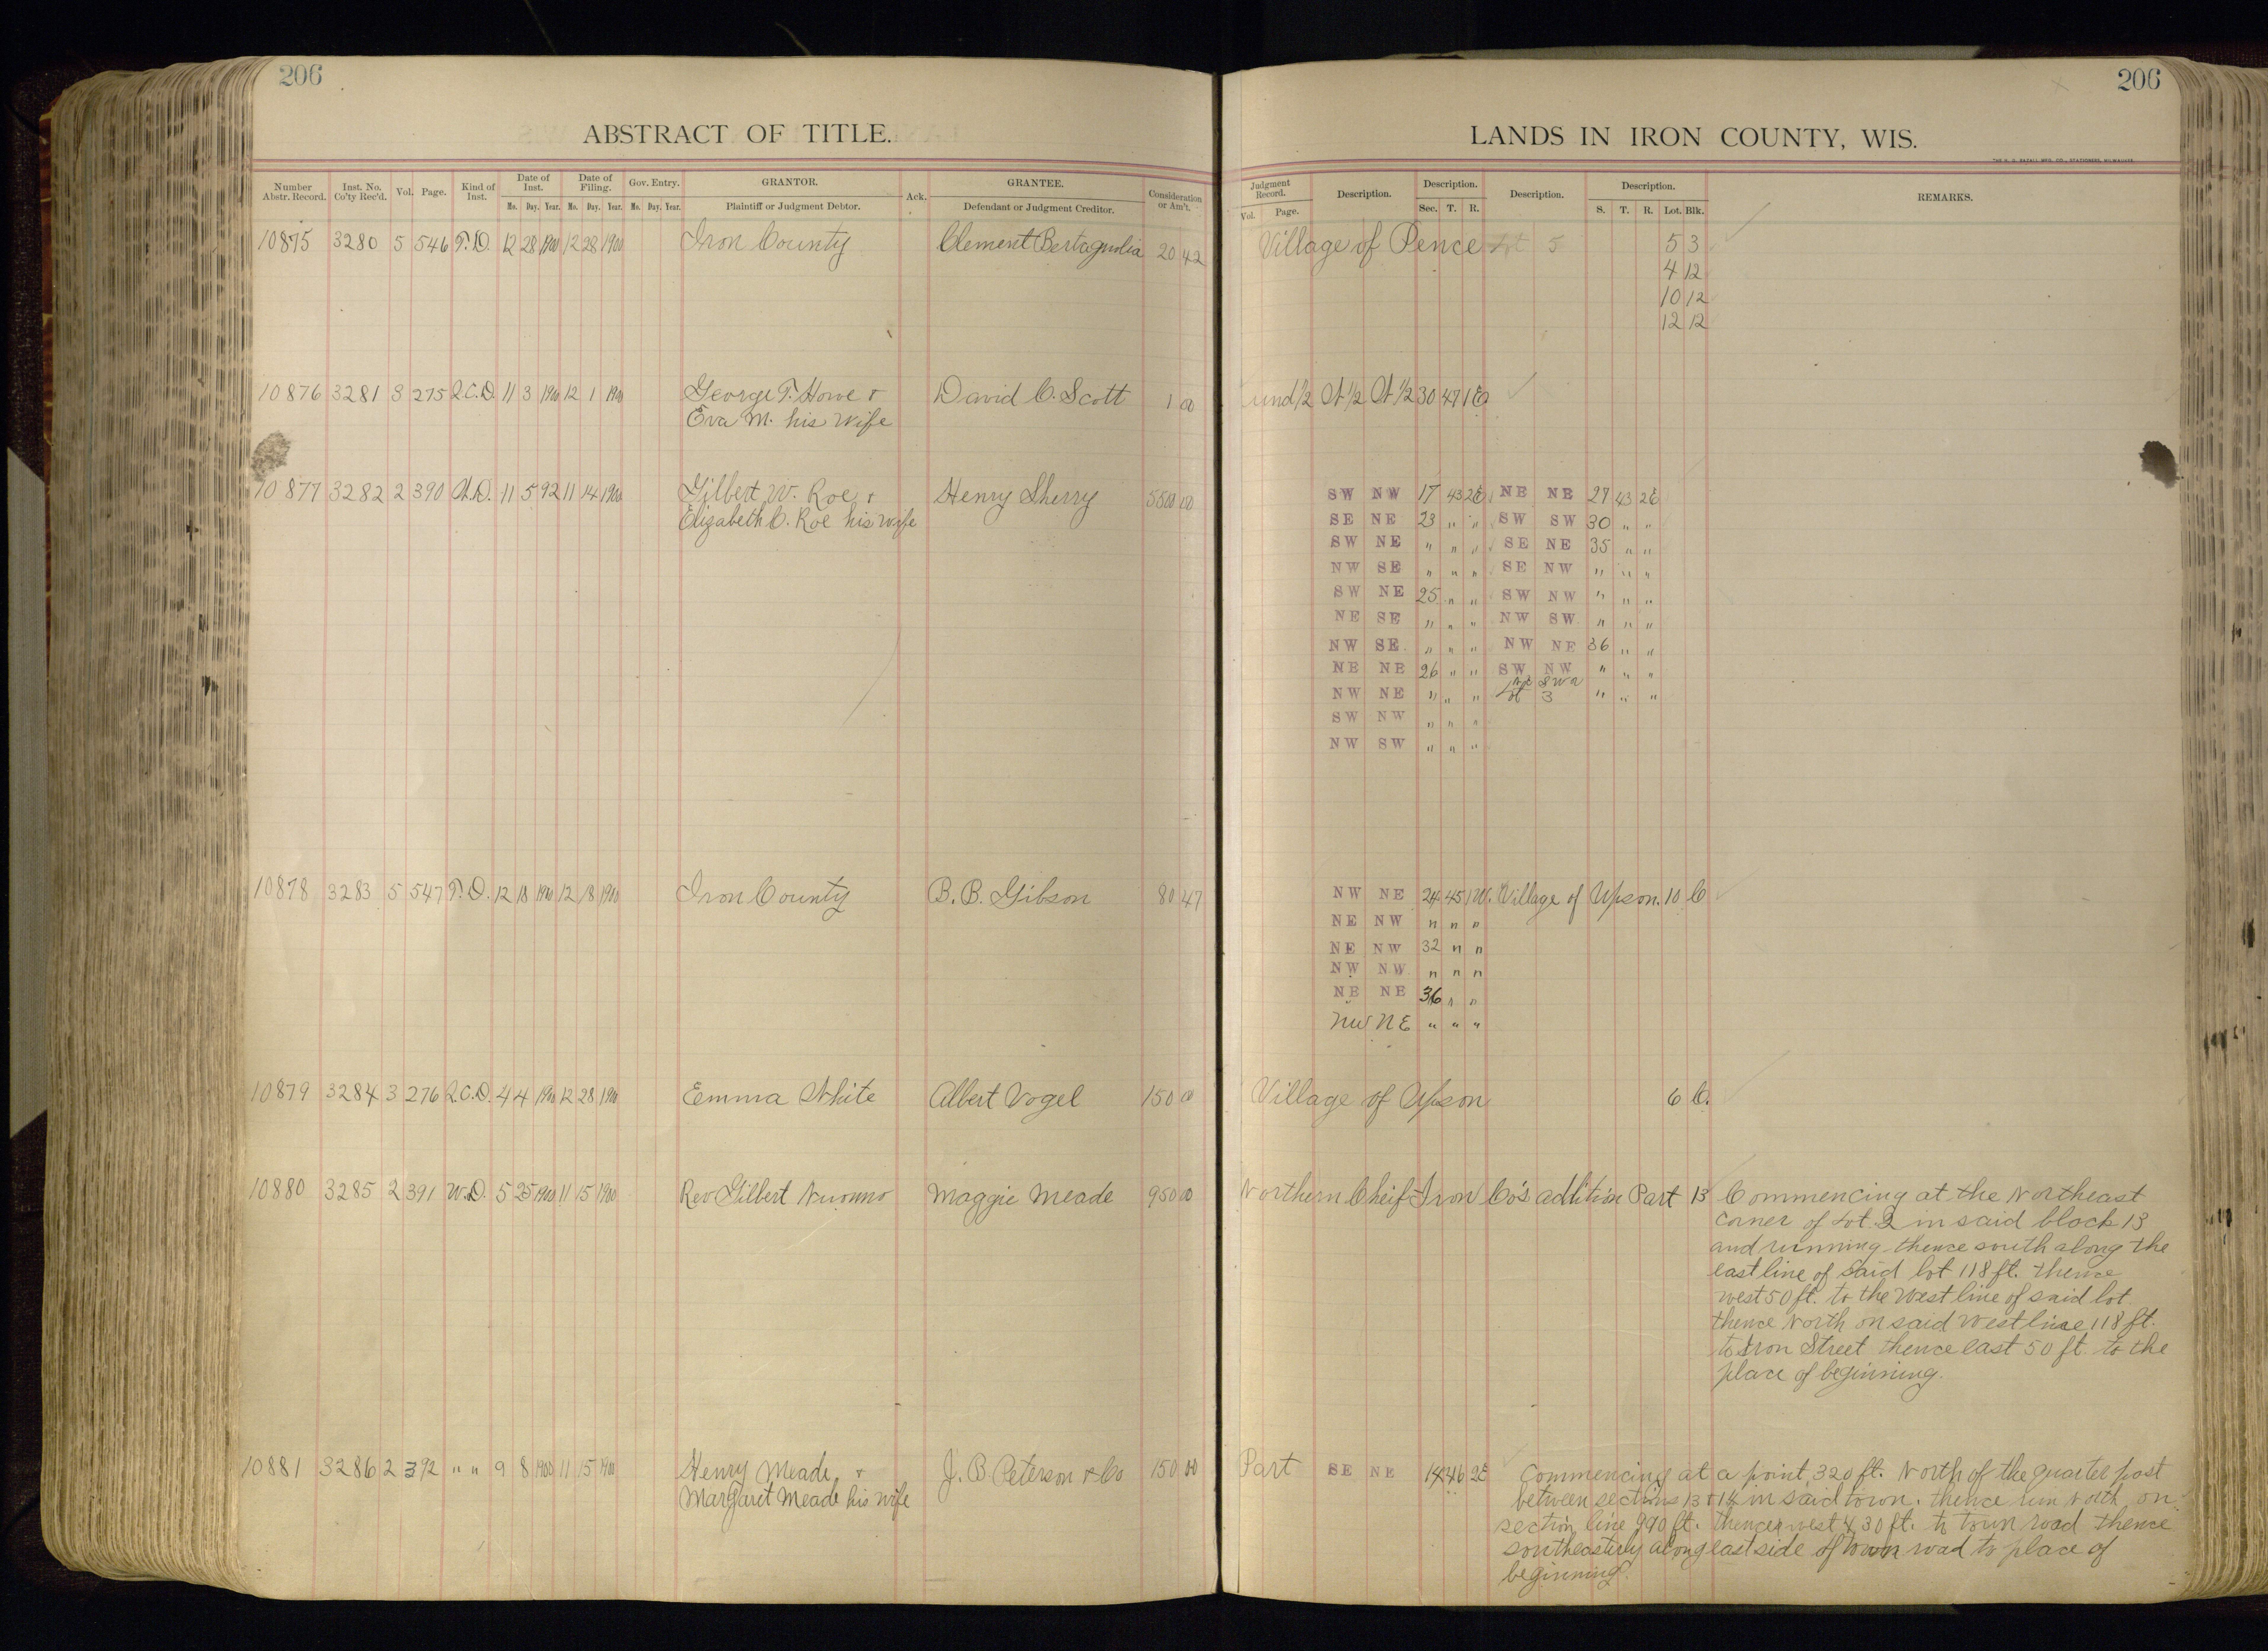 206
ABSTRACT OF TITLE.
Number Abstr. Record. Inst. No. Co'ty Rec'd. Vol. Page. Kind of Inst. Date of Inst. Date of Filing. Gov. Entry. GRANTOR. Ack. GRANTEE. Consideration or Am't.
Mo. Day. Year. Mo. Day. Year. Mo. Day. Year. Plaintiff or Judgment Debtor. Defendant or Judgment Creditor.
10875 3280 5 546 T.D. 12 28 1900 12 28 1900 Iron County Clement Bertagnolia 20 42
10876 3281 3 275 Q.C.D. 11 3 1900 12 1 1900 George T. Howe & David C. Scott 1 00
Eva M. his wife
10877 3282 2 390 W.D. 11 5 92 11 14 1900 Gilbert W. Roe & Henry Sherry 5500 00
Elizabeth C. Roe his wife
10878 3283 5 547 T.D. 12 18 1900 12 18 1900 Iron County B.B. Gibson 80 47
10879 3284 3 276 Q.C.D. 4 4 1900 12 28 1900 Emma White Albert Vogel 150 00
10880 3285 2 391 W.D. 5 25 1900 11 15 1900 Rev Gilbert Maggie Meade 950 00
10881 3286 2 392 " " 9 8 1900 11 15 1900 Henry Meade & J.B Peterson & Co 150 00
Margaret Meade his wife
206
LANDS IN IRON COUNTY, WIS.
Judgment Record. Description. Description. Description. Description. REMARKS.
Vol. Page. Sec. T. R. S. T. R. Lot. Blk.
Village of Pence Lot 5 5 3
4 12
10 12
12 12
und 1/2 W 1/2 W 1/2 30 47 1E
SW NW 17 43 2E NE NE 27 43 2E
SE NE 23 " " SW SW 30 " "
SW NE " " " SE NE 35 " "
NW SE " " " SE NW " " "
SW NE 25 " " SW NW " " "
NE SE " " " NW SW " " "
NW SE " " " NW NE 36 " "
NE NE 26 " " SW NW " " "
NW NE " " " Lot 3 " " "
SW NW " " "
NW SW " " "
NW NE 24 45 1W. Village of Upson. 10 C
NE NW " " "
NE NW 32 " "
NW NW " " "
NE NE 36 " "
NW NE " " "
Village of Upson 6 C.
Northern Cheif Iron Co's addition Part 13 Commencing at the Northeast
corner of Lot. 2 in said block 13
and running thence south along the
east line of said lot 118 ft. thence
west 50 ft. to the West line of said lot.
thence North on said West line 118 ft.
to Iron Street thence east 50 ft. to the
place of beginning.
Part SE NE 14 46 2E Commencing at a point 320 ft. North of the quarter post
between sections 13 & 14 in said town. thence run North on
section line 990 ft. thence west 430 ft. to town road thence
southeasterly along east side of town road to place of
beginning.